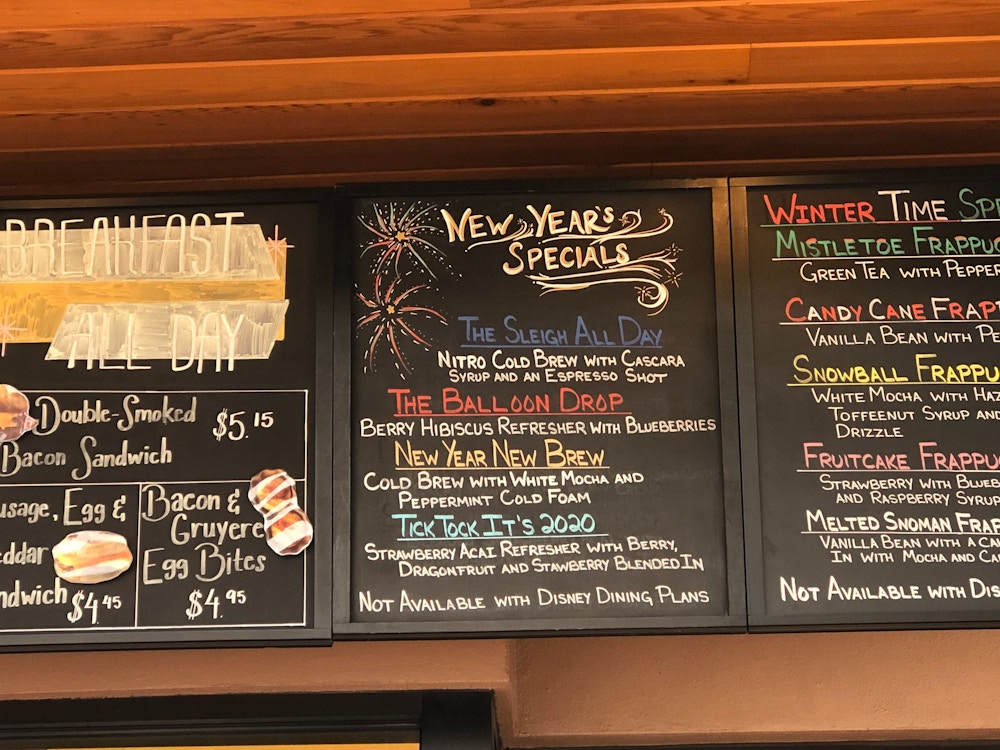 BREAKFAST
ALL DAY
Double-Smoked
Bacon Sandwich
$5.15
usage, Egg &
eddar
ndwich $4.45
Bacon &
Gruyere
Egg Bites
$4.95
NEW YEAR'S
SPECIALS
THE SLEIGH ALL DAY
NITRO COLD BREW WITH CASCARA
SYRUP AND AN ESPRESSO SHOT
THE BALLOON DROP
BERRY HIBISCUS REFRESHER WITH BLUEBERRIES
NEW YEAR NEW BREW
COLD BREW WITH WHITE MOCHA AND
PEPPERMINT COLD FOAM
TICK TOCK IT'S 2020
STRAWBERRY ACAI REFRESHER WITH BERRY,
DRAGONFRUIT AND STAWBERRY BLENDED IN
NOT AVAILABLE WITH DISNEY DINING PLANS
WINTER TIME SPE
MISTLETOE FRAPPUC
GREEN TEA WITH PEPPER
CANDY CANE FRAPP
VANILLA BEAN WITH PE
SNOWBALL FRAPPU
WHITE MOCHA WITH HAZ
TOFFEENUT SYRUP AND
DRIZZLE
FRUITCAKE FRAPPUC
STRAWBERRY WITH BLUEB
AND RASPBERRY SYRUP
MELTED SNOMAN FRAP
VANILLA BEAN WITH A CA
IN WITH MOCHA AND CA
NOT AVAILABLE WITH DIS